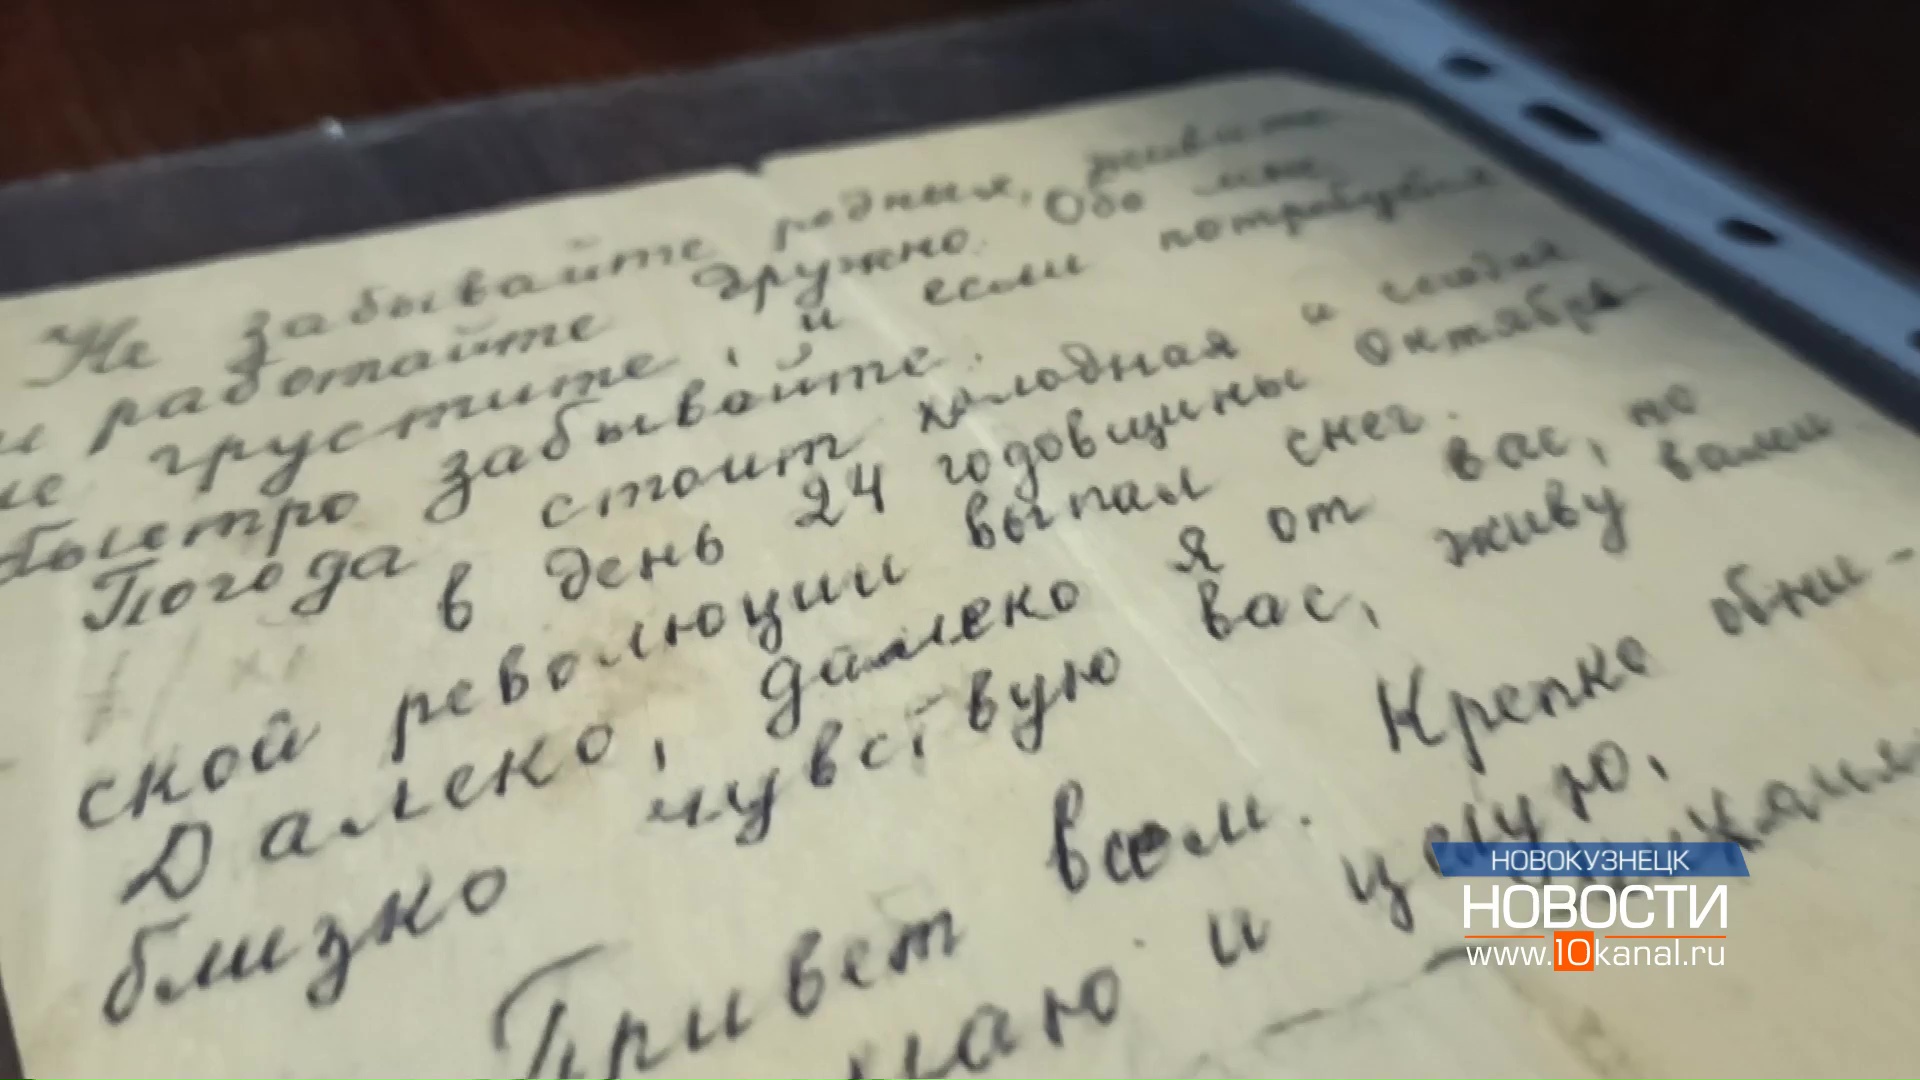 Не забывайте родных, живите
и работайте дружно. Обо мне
не грустите, и если потребуется
быстро забывайте.
Погода стоит холодная и сегодня
в день 24 годовщины Октябрь
ской революции выпал снег.
Далеко, далеко я от вас, но
близко чувствую вас, живу вами
Привет всем. Крепко обни-
маю и целую,
НОВОКУЗНЕЦК
НОВОСТИ
www.10kanal.ru